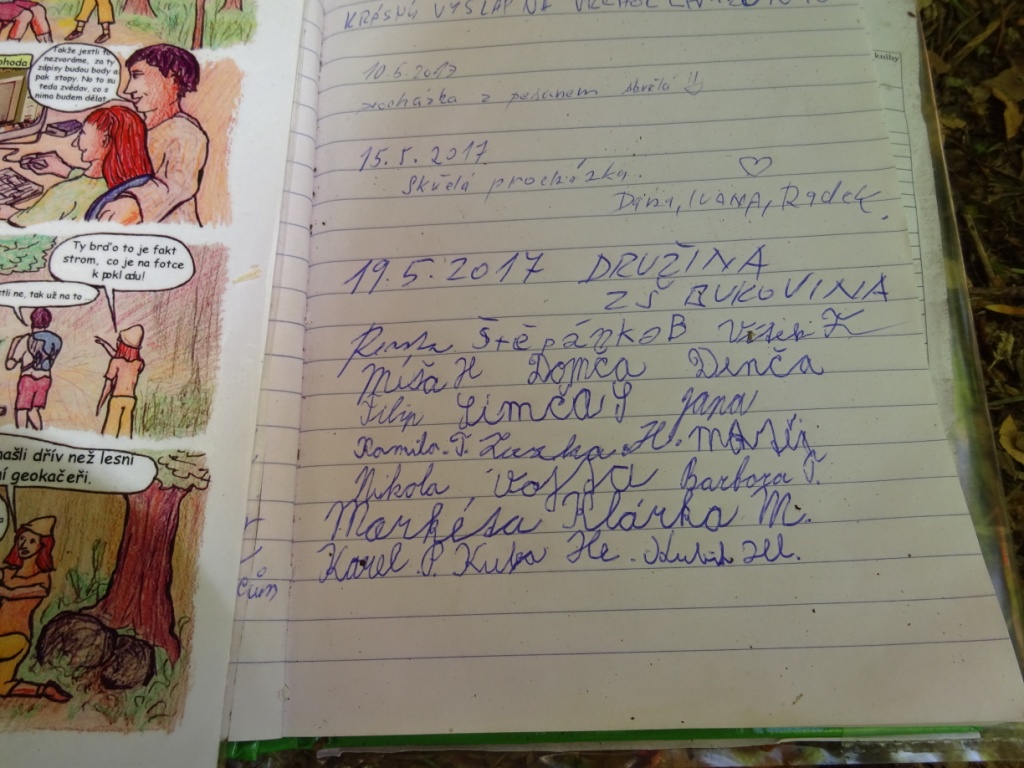 ohoda
Takže jestli to
nezvoráme, za ty
zápisy budou body a
pak stopy. No to su
teda zvědav, co s
nima budem dělat.
Ty brďo to je fakt
strom, co je na fotce
k pokladu!
tli ne, tak už na to
našli dřív než lesní
ní geokačeři.
KRÁSNÝ VÝŠLAP NA VRCHOL
10.5.2017
procházka z
15.5.2017
Skvělá procházka.
Dana, IVANA, Radek.
19.5.2017 DRUŽINA
ZŠ BUKOVINA
Štěpánka B
Míša H Domča Denča
Filip Simča S Jana
Kamila T. Zuzka H.
Nikola Vojta Barbora P.
Markéta Klárka M.
Karel P. Kuba He.